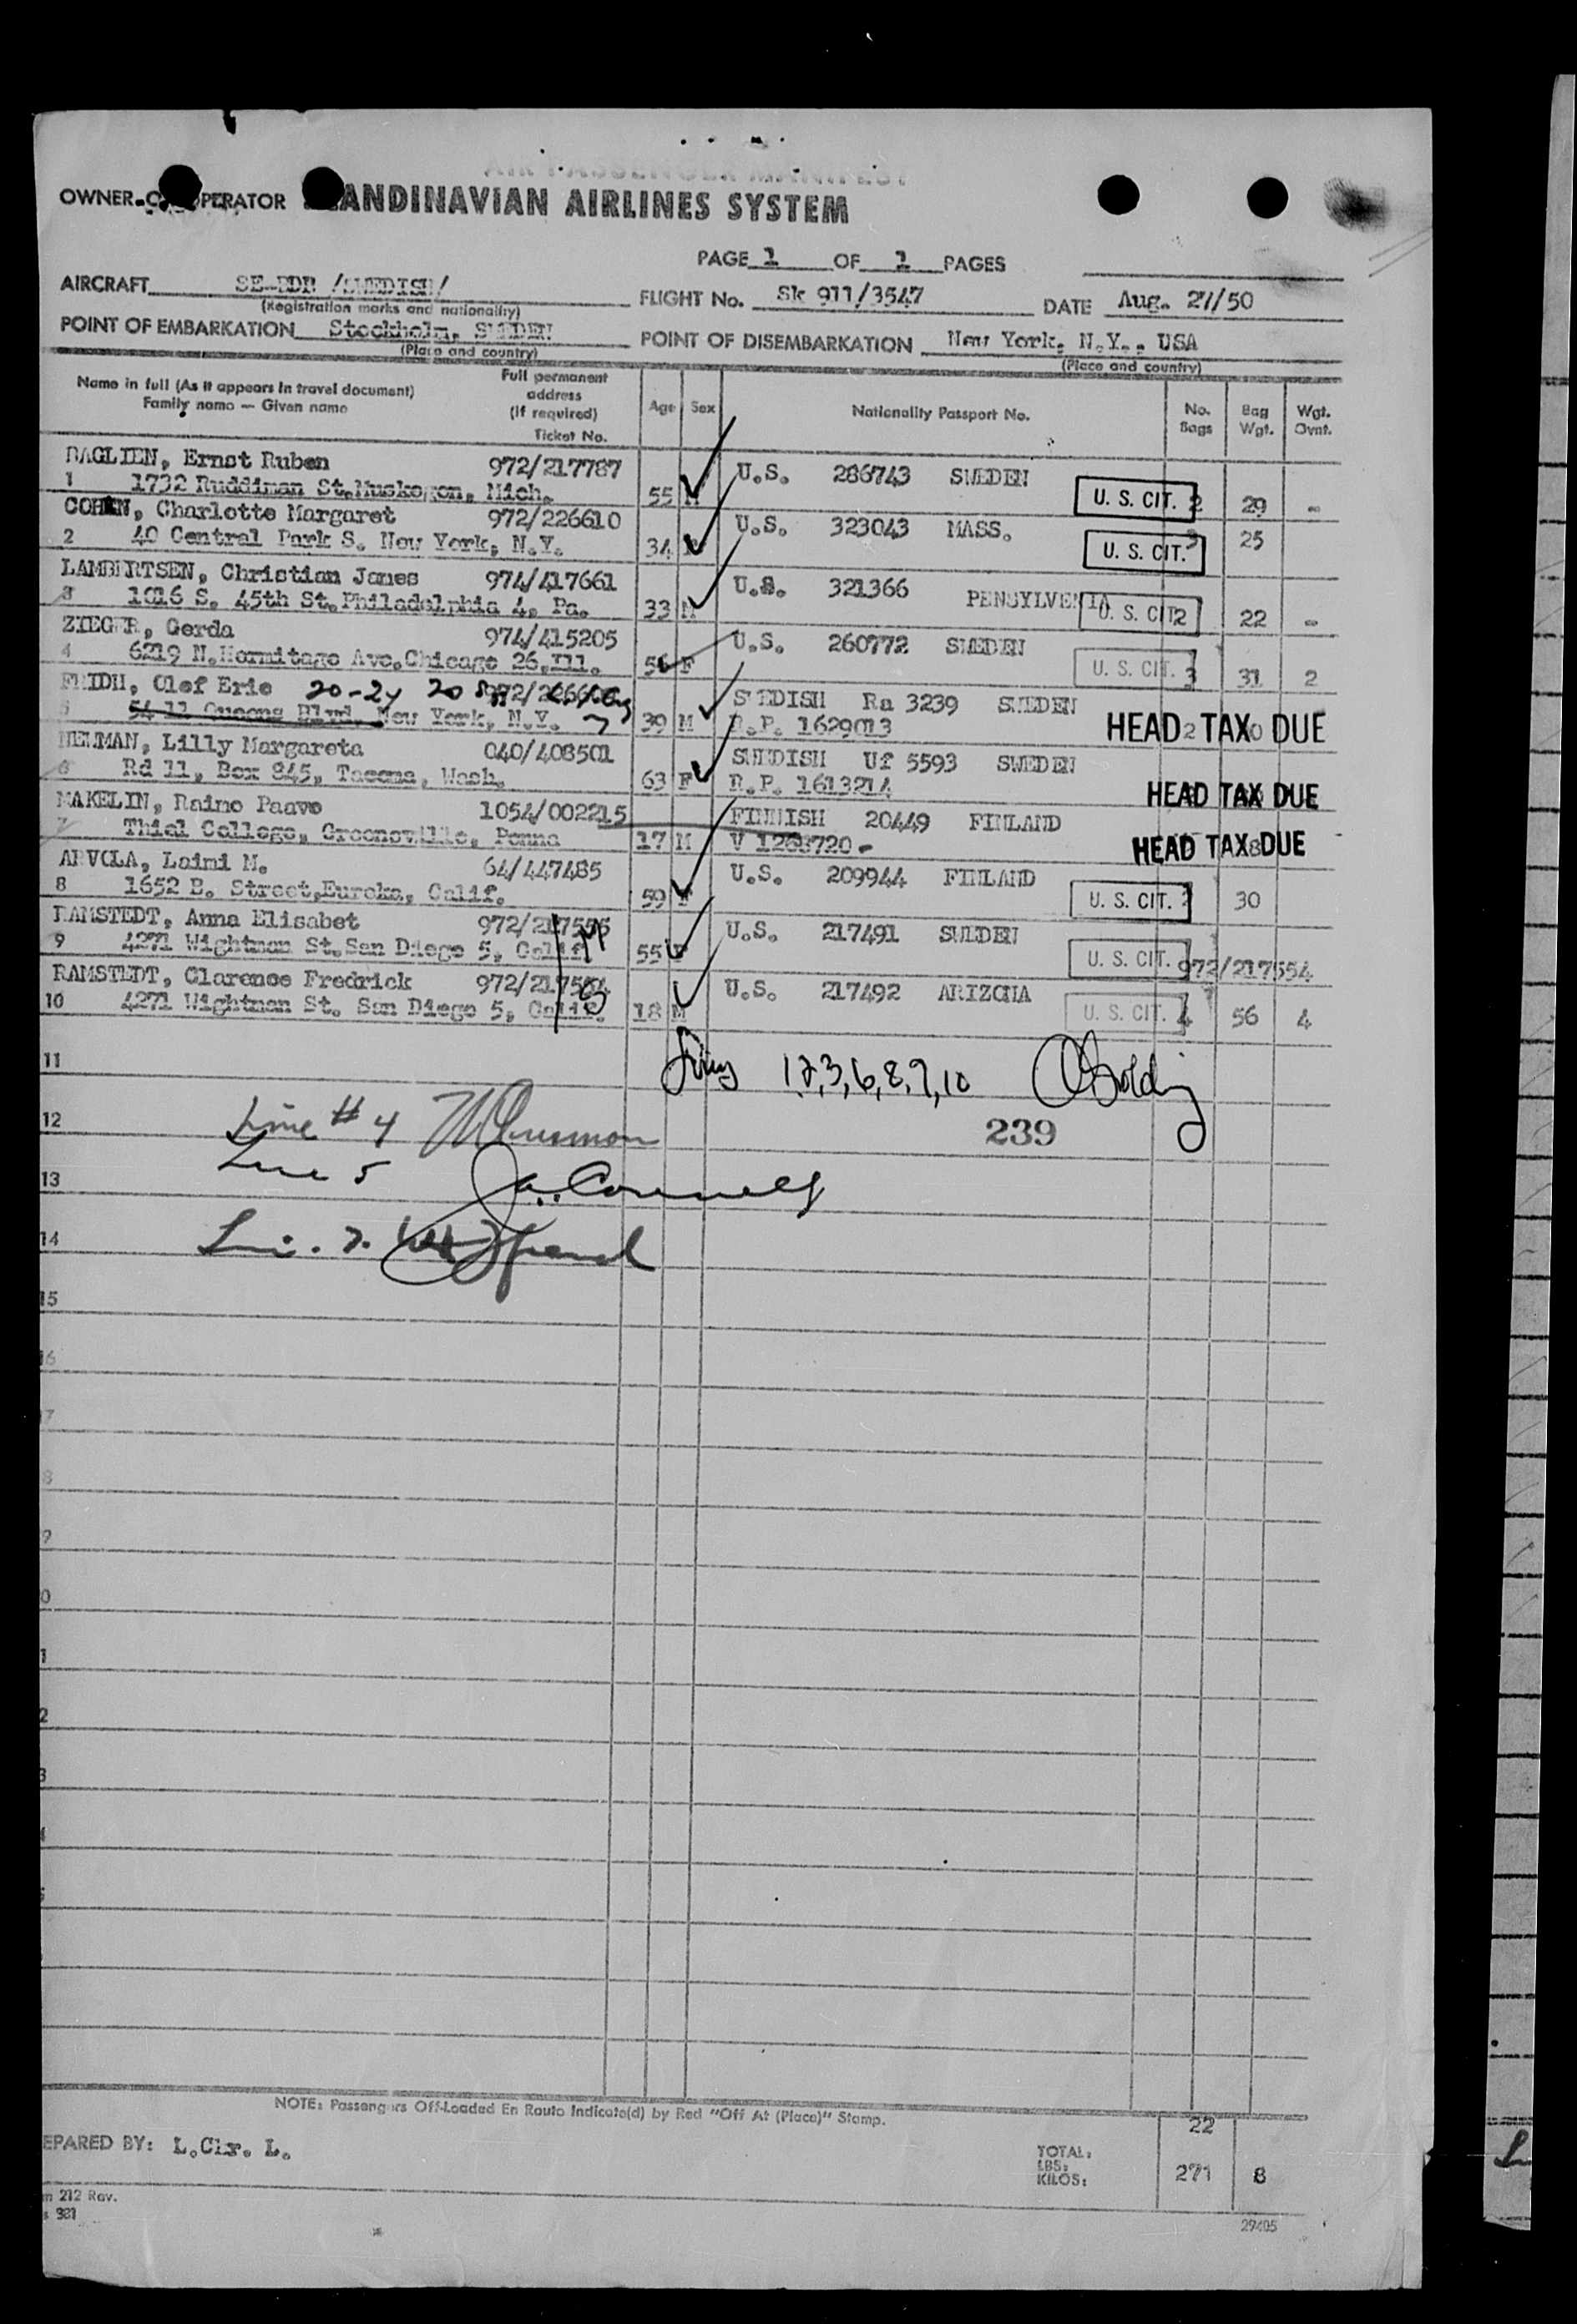 AIR PASSENGER MANIFEST
OWNER OPERATOR SCANDINAVIAN AIRLINES SYSTEM
PAGE 1 OF 1 PAGES
AIRCRAFT /SWEDISH/ FLIGHT No. Sk 911/3547 DATE Aug. 27/50
(Registration marks and nationality)
POINT OF EMBARKATION Stockholm, SWEDEN POINT OF DISEMBARKATION New York, N.Y., USA
(Place and country) (Place and country)
Name in full (As it appears in travel document) Full permanent
Family name — Given name address
(If required) Age Sex Nationality Passport No. No. Bags Bag Wgt. Wgt. Ovnt.
Ticket No.
DAGLIEN, Ernst Ruben 972/217787 U.S. 286743 SWEDEN
1 1732 Ruddiman St. Muskegon, Mich. 55 M U. S. CIT. 2 29 -
COHEN, Charlotte Margaret 972/226610 U.S. 323043 MASS.
2 40 Central Park S. New York, N.Y. 34 F U. S. CIT. 3 25
LAMBERTSEN, Christian James 974/417661 U.S. 321366 PENSYLVENIA
3 1016 S. 45th St. Philadelphia 4, Pa. 33 M U. S. CIT. 2 22 -
ZIEGER, Gerda 974/415205 U.S. 260772 SWEDEN
4 6219 N. Hermitage Ave. Chicago 26, Ill. 56 F U. S. CIT. 3 31 2
FRIDH, Olof Eric 20-24 20 SWEDISH Ra 3239 SWEDEN
5 54-11 Queens Blvd, New York, N.Y. 39 M R.P. 1629013 HEAD TAX DUE
HELMAN, Lilly Margareta 040/408501 SWEDISH Uf 5593 SWEDEN
6 Rd 11, Box 845, Tacoma, Wash. 63 F R.P. 1613214 HEAD TAX DUE
MAKELIN, Raino Paavo 1054/002215 FINNISH 20449 FINLAND
7 Thiel College, Greenoville, Penna 17 M V 1268720 - HEAD TAX DUE
ARVOLA, Laimi M. 64/447485 U.S. 209944 FINLAND
8 1652 B. Street, Eureka, Calif. 59 F U. S. CIT. 2 30
RAMSTEDT, Anna Elisabet U.S. 217491 SWEDEN
9 4271 Wightman St. San Diego 5, Calif. 55 F U. S. CIT. 972/217554
RAMSTEDT, Clarence Fredrick U.S. 217492 ARIZONA
10 4271 Wightman St. San Diego 5, Calif. 18 M U. S. CIT. 4 56 4
11 1,2,3,6,8,9,10
12 Line # 4 239
13 Line 5
14
15
16
NOTE: Passengers Off-Loaded En Route Indicate(d) by Red "Off At (Place)" Stamp.
22
EPARED BY: L.Chr. L. TOTAL:
LBS:
KILOS: 271 8
m 212 Rev.
s 381
29405